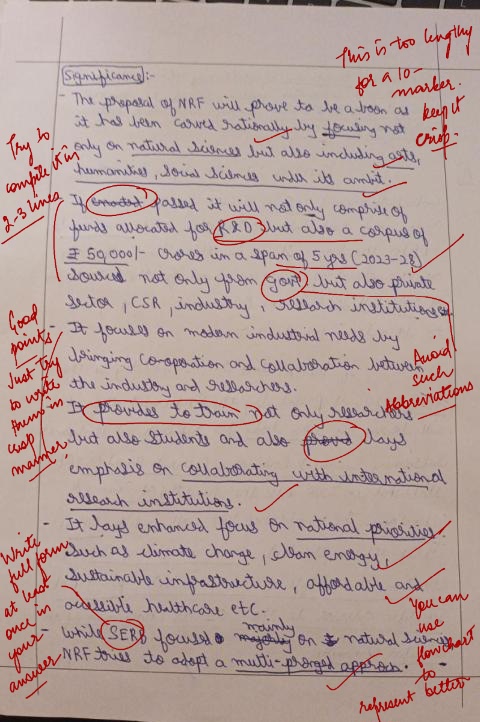 This is too lengthy
for a 10-
marker.
keep it
crisp.
Significance:-
- The proposal of NRF will prove to be a boon as
it has been carved rationally by focusing not
only on natural sciences but also including arts,
humanities, social sciences under its ambit.
Try to
compile it in
2-3 lines
- If enacted passed it will not only comprise of
funds allocated for R&D but also a corpus of
₹ 50,000/- Crores in a span of 5 yrs (2023-28)
sourced not only from govt but also private
sector, CSR, industry, research institutions
- It focuses on modern industrial needs by
bringing co-operation and collaboration between
the industry and researchers.
Good
points.
Just try
to write
them in
crisp
manner.
Avoid
such
Abbreviations
- It provides to train not only researchers
but also students and also provid lays
emphasis on collaborating with international
research institutions.
- It lays enhanced focus on national priorities
such as climate change, clean energy,
sustainable infrastructure, affordable and
accessible healthcare etc.
Write
full form
at least
once in
your
answer
- while SERB focused mainly majorly on natural sciences
NRF tries to adopt a multi-pronged approach.
You can
use
flowchart
to
represent better